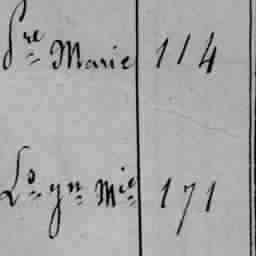 Pre Marie 114
Ls yn Mie 171